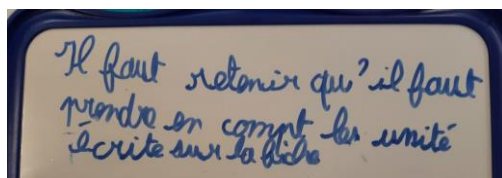 Il faut retenir qu'il faut
prendre en compt les unité
écrite sur la fiche